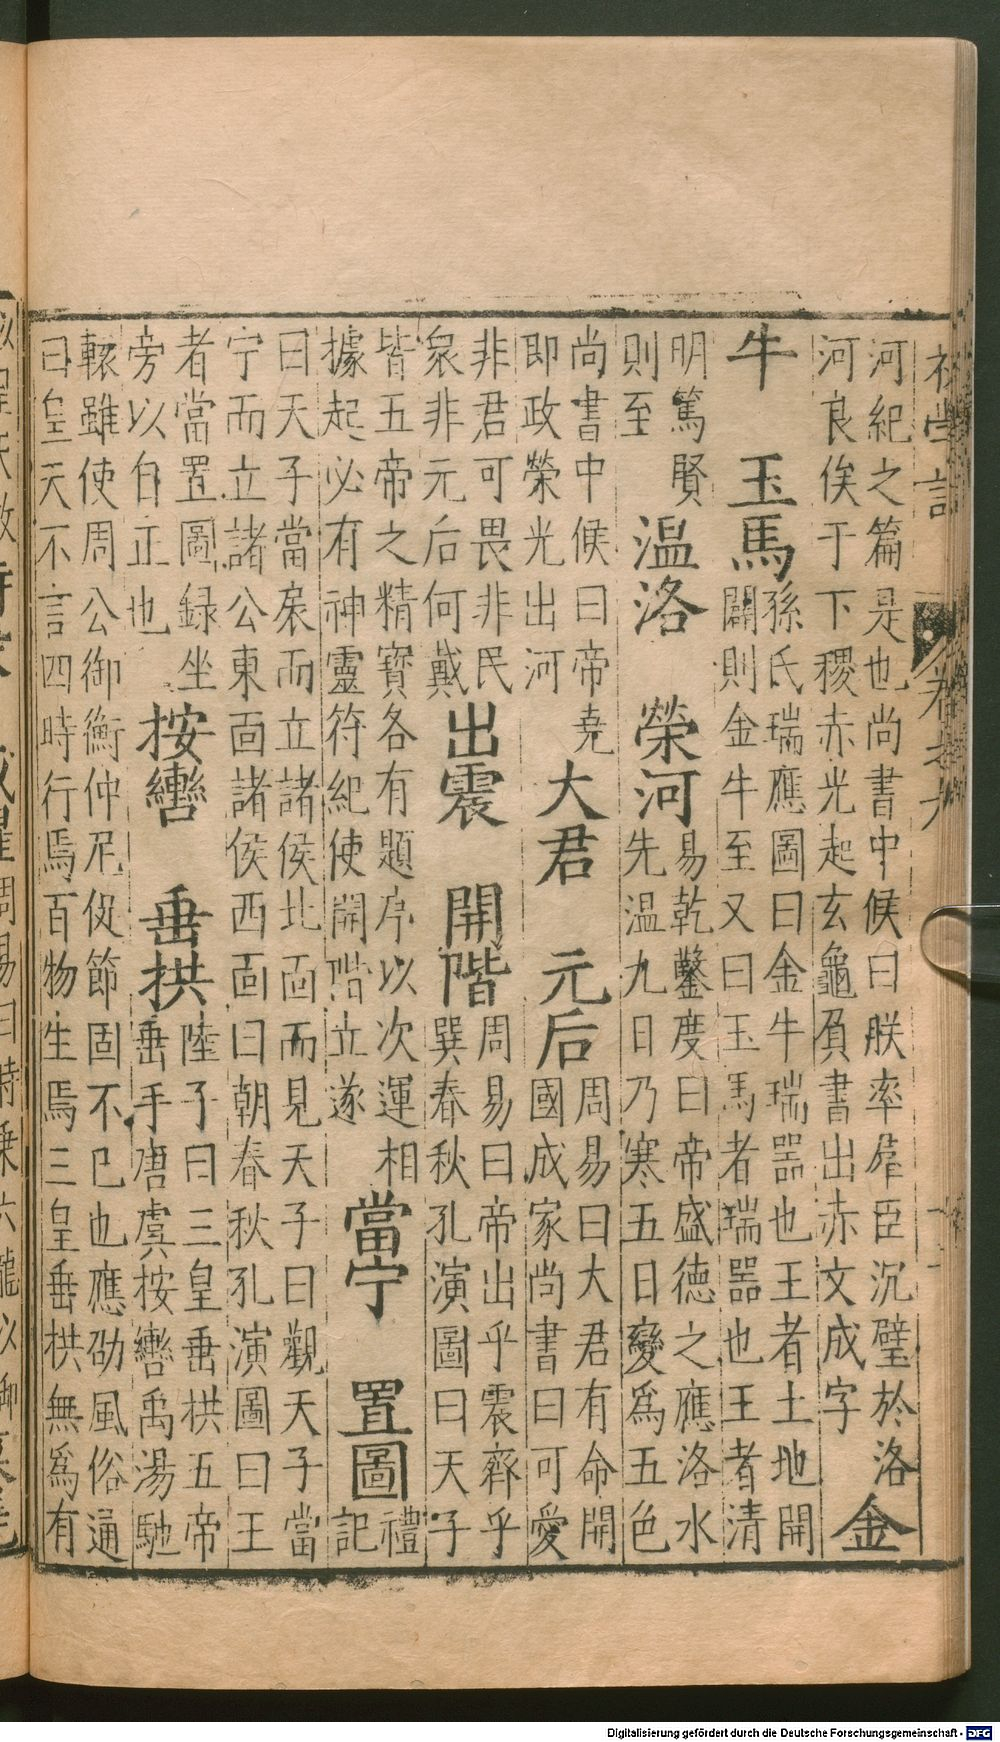 初學記 卷九
河紀之篇是也尚書中候曰朕率羣臣沉璧於洛
河良俟于下稷赤光起玄龜負書出赤文成字
金
牛 玉馬
孫氏瑞應圖曰金牛瑞噐也王者土地開
闢則金牛至又曰玉馬者瑞噐也王者清
明篤賢
則至
温洛 榮河
易乾鑿度曰帝盛德之應洛水
先温九日乃寒五日變爲五色
尚書中候曰帝堯
即政榮光出河
大君 元后
周易曰大君有命開
國成家尚書曰可愛
非君可畏非民
衆非元后何戴
出震 開階
周易曰帝出乎震齊乎
巽春秋孔演圖曰天子
皆五帝之精寶各有題序以次運相
據起必有神靈符紀使開階立遂
當宁 置圖
禮
記
曰天子當扆而立諸侯北面而見天子曰覲天子當
宁而立諸公東面諸侯西面曰朝春秋孔演圖曰王
者當置圖録坐
旁以自正也
按轡 垂拱
陸子曰三皇垂拱五帝
垂手唐虞按轡禹湯馳
轅雖使周公御衡仲尼促節固不已也應劭風俗通
曰皇天不言四時行焉百物生焉三皇垂拱無爲有
Digitalisierung gefördert durch die Deutsche Forschungsgemeinschaft - DFG